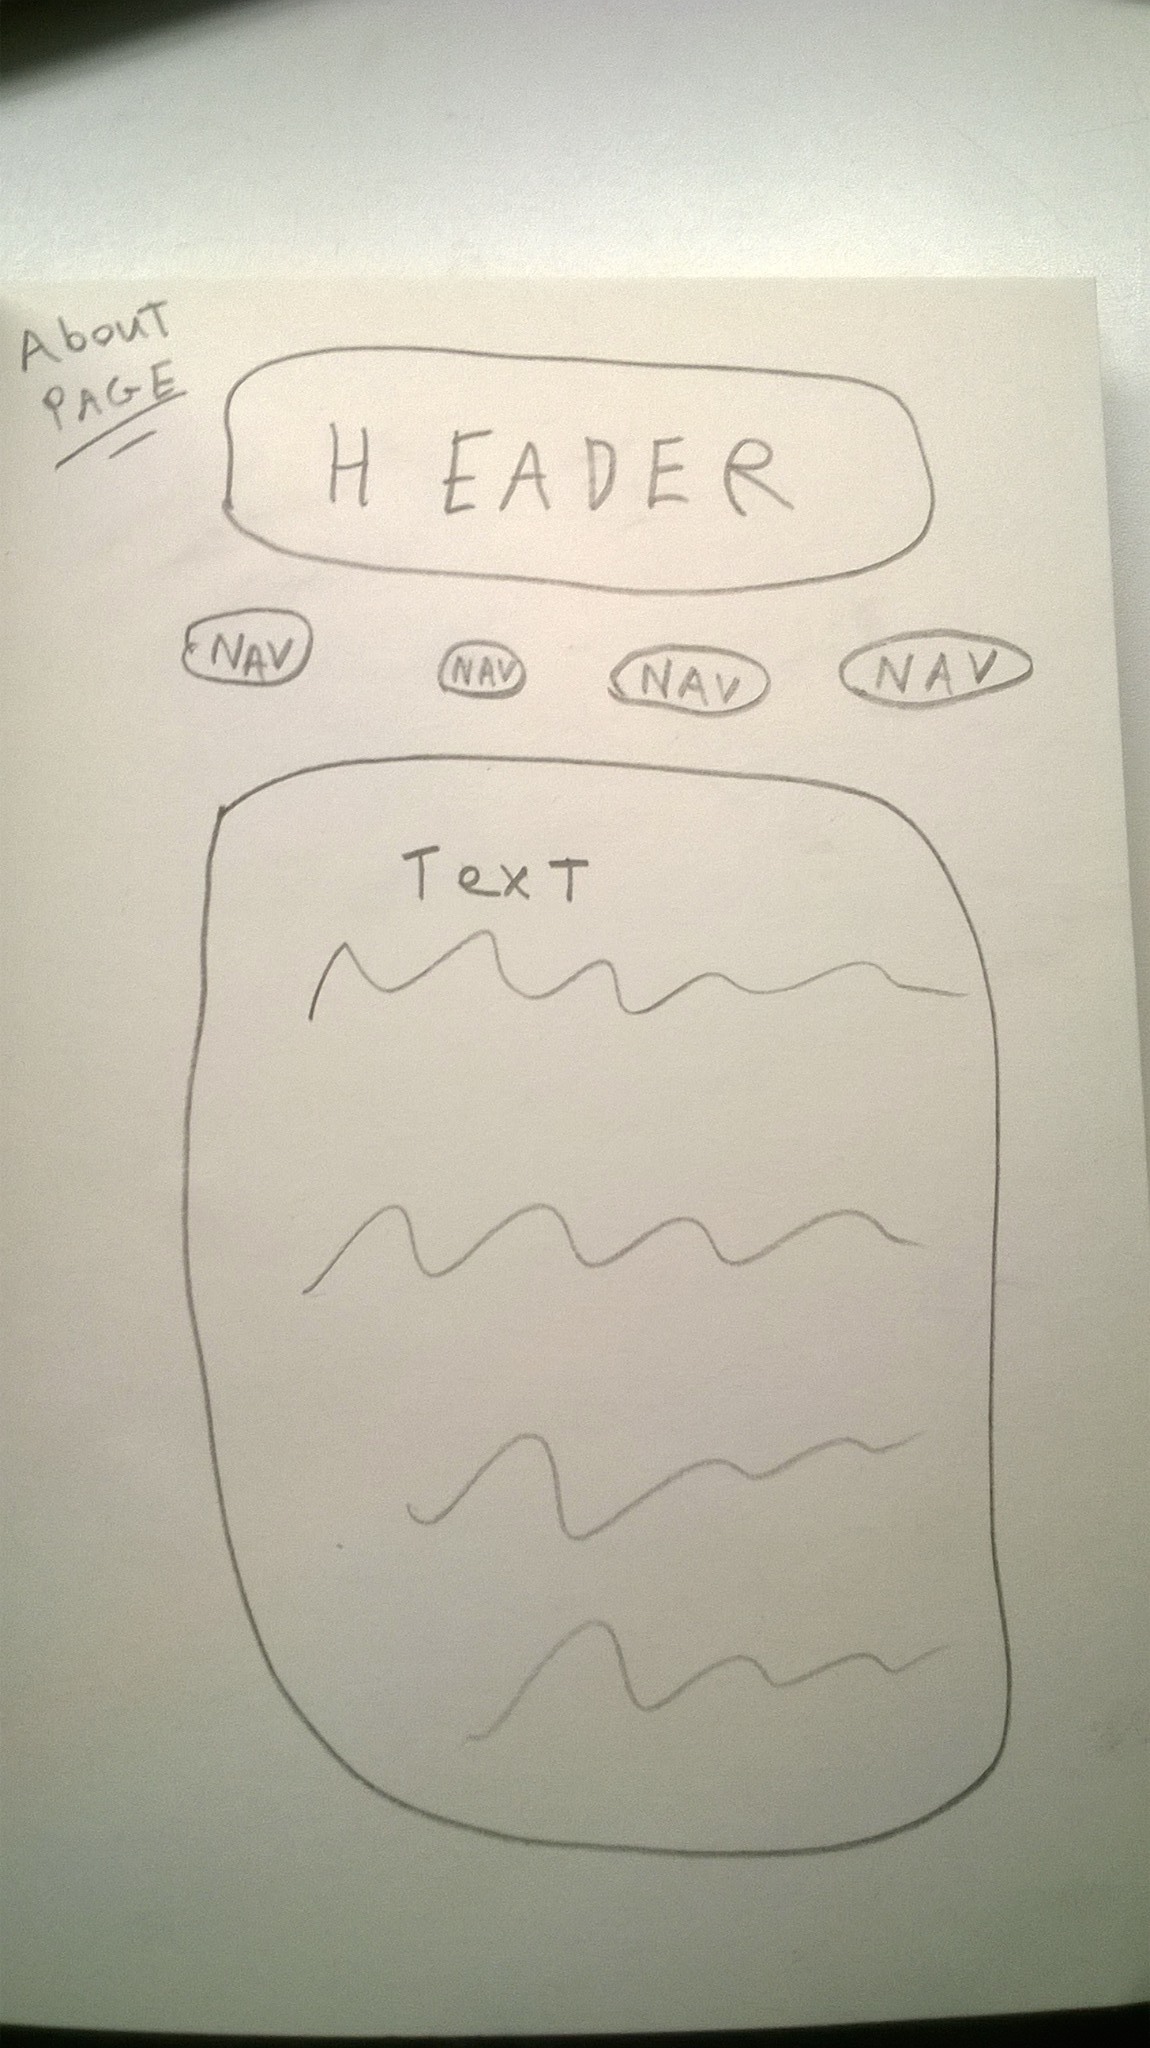 About
PAGE
HEADER
NAV NAV NAV NAV
Text